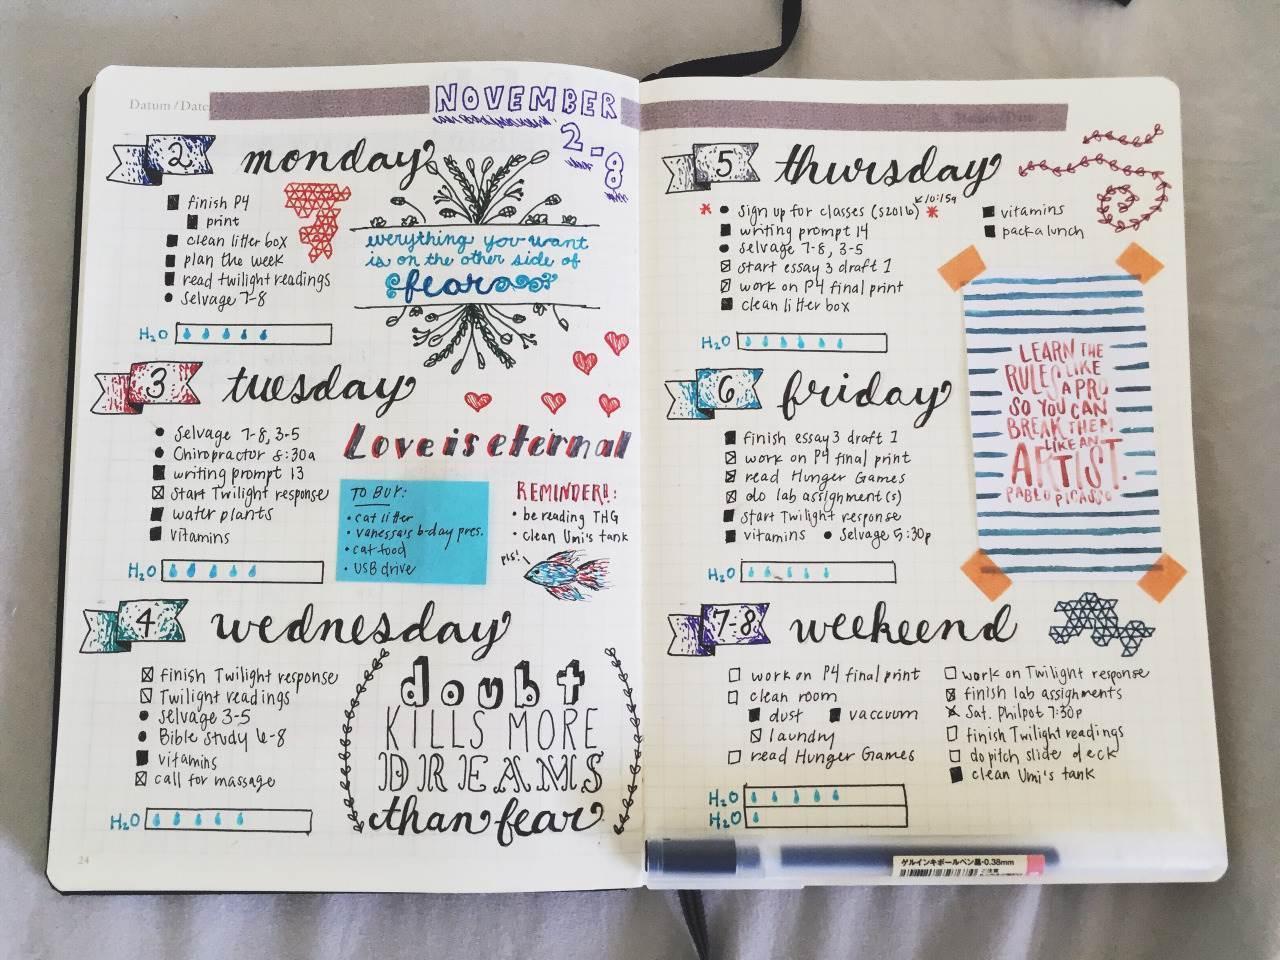 Datum / Date:
NOVEMBER
2-8
2 monday
finish P4
print
clean litter box
plan the week
read twilight readings
Selvage 7-8
H₂O
everything you want
is on the other side of
fear
3 tuesday
Selvage 7-8, 3-5
Chiropractor 8:30a
writing prompt 13
start Twilight response
water plants
vitamins
H₂O
Love is eternal
TO BUY:
• cat litter
• vanessa's b-day pres.
• cat food
• USB drive
REMINDER!!:
• be reading THG
• clean Umi's tank
pls!
4 wednesday
finish Twilight response
Twilight readings
Selvage 3-5
Bible Study 6-8
vitamins
call for massage
H₂O
doubt
KILLS MORE
DREAMS
than fear
24
5 thursday
10:15a
* Sign up for classes (S2016) *
writing prompt 14
selvage 7-8, 3-5
start essay 3 draft 1
work on P4 final print
clean litter box
vitamins
pack a lunch
H₂O
6 friday
finish essay 3 draft 1
work on P4 final print
read Hunger Games
do lab assignment(s)
start Twilight response
vitamins • Selvage 5:30p
H₂O
LEARN THE
RULES LIKE
A PRO
SO YOU CAN
BREAK THEM
LIKE AN
ARTIST.
PABLO PICASSO
7-8 weekend
work on P4 final print
clean room
dust vaccuum
laundry
read Hunger Games
work on Twilight response
finish lab assignments
Sat. Philpot 7:30p
finish Twilight readings
do pitch slide deck
clean Umi's tank
H₂O
H₂O
ゲルインキボールペン黒・0.38mm